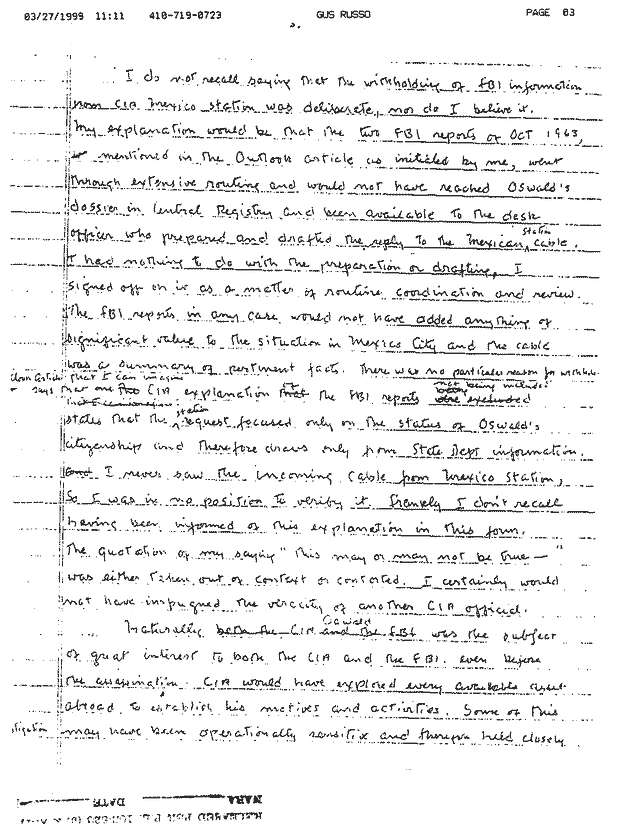 03/27/1999 11:11 410-719-0723 GUS RUSSO PAGE 03
2.
I do not recall saying that the withholding of FBI information
from CIA Mexico station was deliberate, nor do I believe it.
My explanation would be that the two FBI reports of OCT 1963,
mentioned in the Outlook article as initialed by me, went
through extensive routing and would not have reached Oswald's
dossier in Central Registry and been available to the desk
officer who prepared and drafted the reply to the Mexican station cable.
I had nothing to do with the preparation or drafting, I
signed off on it as a matter of routine coordination and review.
The FBI reports in any case would not have added anything of
significant value to the situation in Mexico City and the cable
was a summary of pertinent facts. There was no particular reason for withhold-
that I can imagine
article
says that one CIA explanation the FBI reports not being included
states that the station request focused only on the status of Oswald's
citizenship and therefore draws only from State Dept information.
I never saw the incoming cable from Mexico Station,
so I was in no position to verify it. Frankly I don't recall
having been informed of this explanation in this form.
The quotation of my saying "this may or may not be true—"
was either taken out of context or contorted. I certainly would
not have inpugned the veracity of another CIA official.
Naturally both the CIA and the FBI Oswald was the subject
of great interest to both the CIA and the FBI. even before
the assassination. CIA would have explored every available asset
abroad to establish his motives and activities. Some of this
may have been operationally sensitive and therefore held closely
NARA DATE